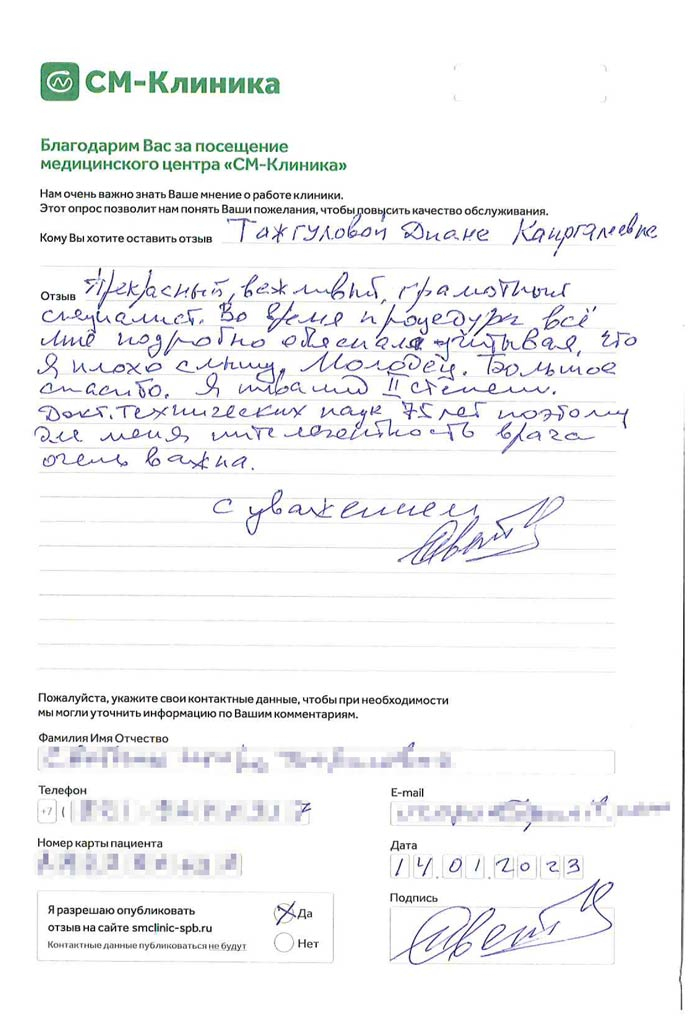 СМ-Клиника
Благодарим Вас за посещение
медицинского центра «СМ-Клиника»
Нам очень важно знать Ваше мнение о работе клиники.
Этот опрос позволит нам понять Ваши пожелания, чтобы повысить качество обслуживания.
Кому Вы хотите оставить отзыв Тажгуловой Диане Каиргалеевне
Отзыв Прекрасный, вежливый, грамотный
специалист. Во время процедуры всё
мне подробно объяснала учитывая, что
я плохо слышу. Молодец. Большое
спасибо. Я инвалид II степени.
Докт. технических наук 75 лет поэтому
для меня интелегентность врача
очень важна.
с уважением
Пожалуйста, укажите свои контактные данные, чтобы при необходимости
мы могли уточнить информацию по Вашим комментариям.
Фамилия Имя Отчество
Телефон
E-mail
+7 (
Номер карты пациента
Дата
14.01.2023
Подпись
Я разрешаю опубликовать
отзыв на сайте smclinic-spb.ru
Контактные данные публиковаться не будут
Да
Нет